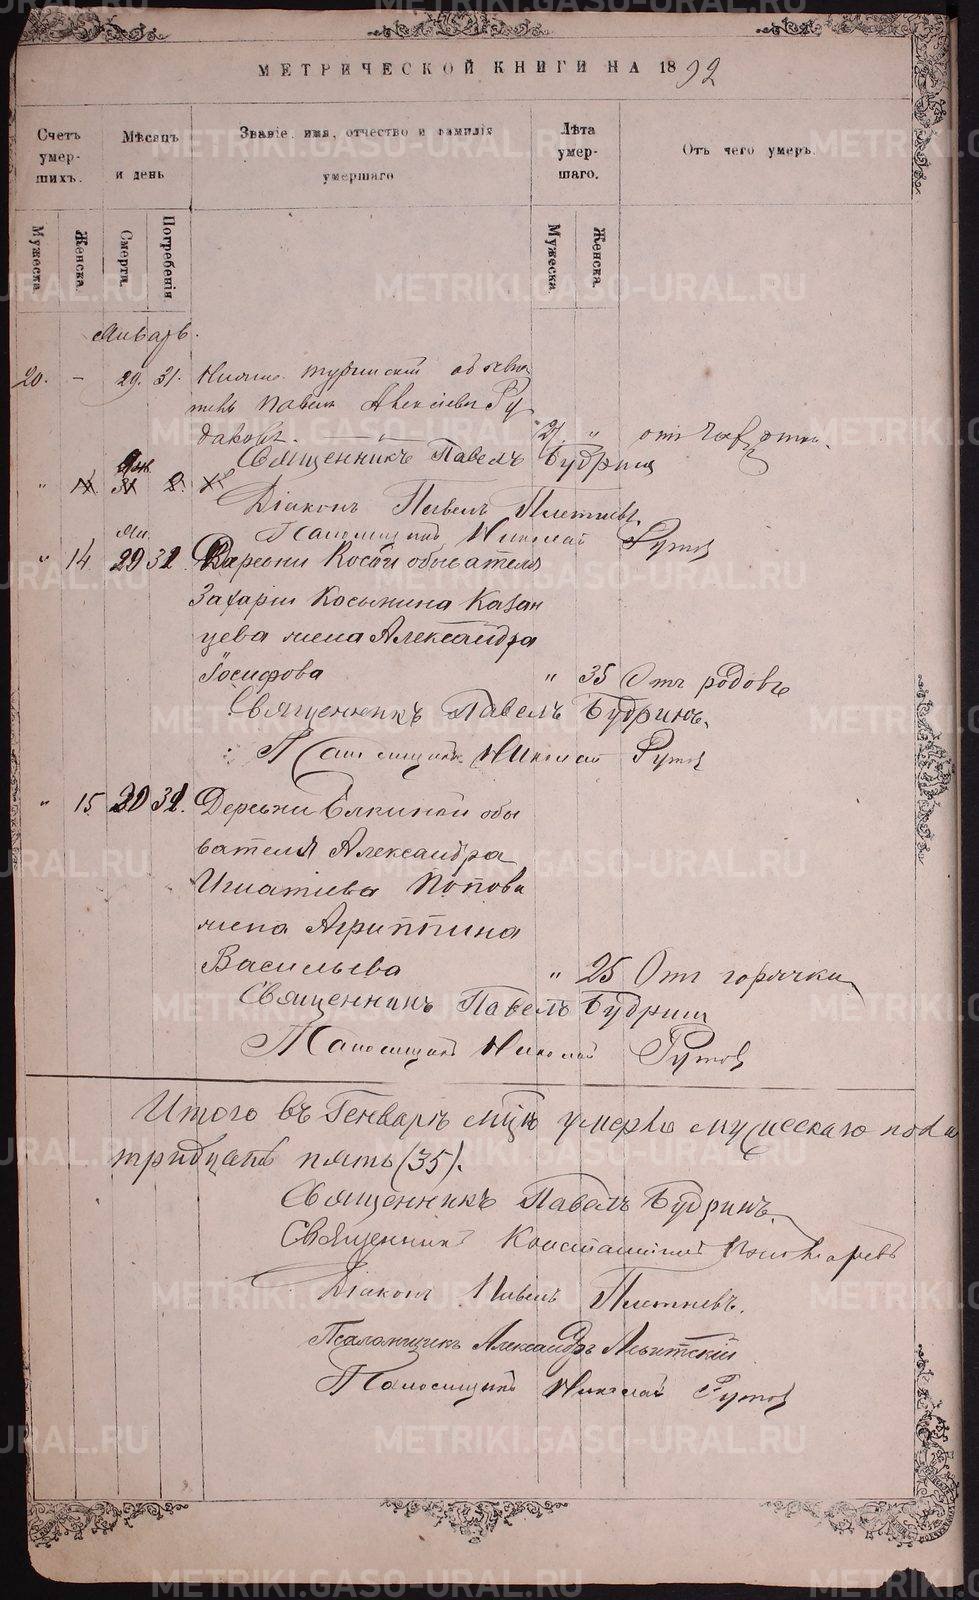 МЕТРИЧЕСКОЙ КНИГИ НА 1892
Счетъ умер-шихъ.
Мѣсяцъ и день
Званіе, имя, отчество и фамилія умершаго
Лѣта умер-шаго.
Отъ чего умеръ.
Мужеска.
Женска.
Смерти.
Погребенія
Мужеска
Женска.
Январь.
20. - 29. 31. Нижне туринскій обыва
тель Павелъ Алексіевъ Ру
даковъ. 21. " отъ чахотки.
Священникъ Павелъ Будринъ
Діаконъ Павелъ Плетневъ.
Псаломщикъ Николай
" 14 29 31 Деревни Косой обывателя
Захарія Косьмина Казан
цева жена Александра
Іосифова " 35 Отъ родовъ
Священникъ Павелъ Будринъ.
Псаломщикъ Николай
" 15 30 31. Деревни Елкиной обы
вателя Александра
Игнатіева Попова
жена Агриппина
Васильева " 25 Отъ горячки
Священникъ Павелъ Будринъ
Псаломщикъ Николай
Итого въ Генварѣ мцѣ умерло мужескаго пола
тридцать пять (35).
Священникъ Павелъ Будринъ.
Священникъ Константинъ Пономаревъ
Діаконъ Павелъ Плетневъ.
Псаломщикъ Александръ
Псаломщикъ Николай
METRIKI.GASO-URAL.RU